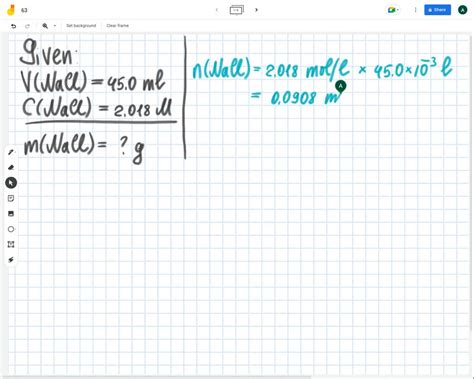 63
Set background Clear frame
Share
A
Given:
V(NaCl) = 45.0 ml
C(NaCl) = 2.018 M
m(NaCl) = ? g
n(NaCl) = 2.018 mol/l × 45.0×10⁻³ l
= 0.0908 m
A